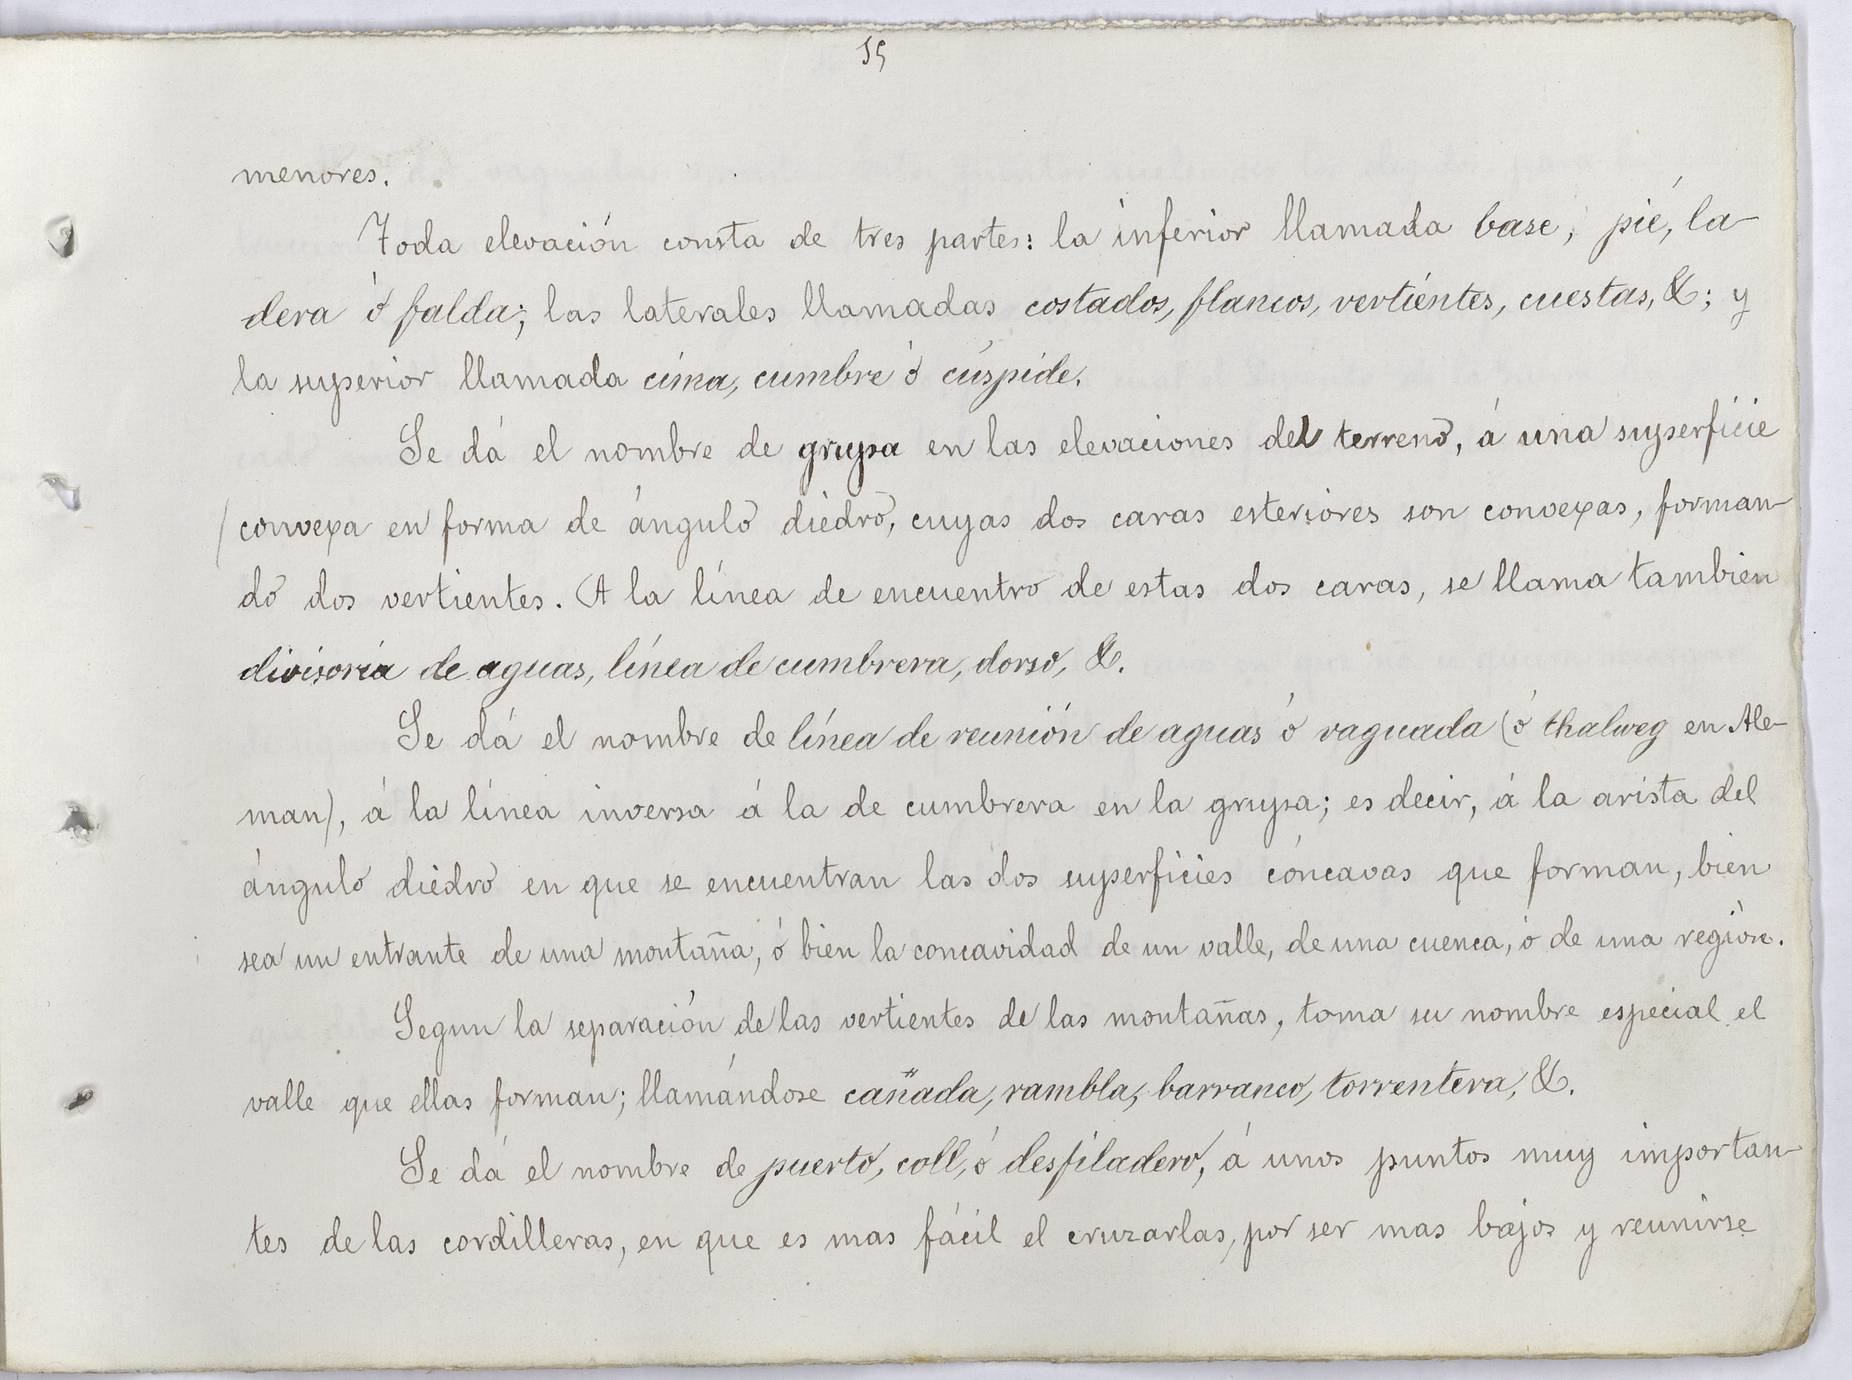 15
menores.
Toda elevación consta de tres partes: la inferior llamada base, pié, la-
dera ó falda; las laterales llamadas costados, flancos, vertientes, cuestas, &; y
la superior llamada cima, cumbre ó cúspide.
Se dá el nombre de grupa en las elevaciones del terreno, á una superficie
convexa en forma de ángulo diedro, cuyas dos caras esteriores son convexas, forman-
do dos vertientes. A la línea de encuentro de estas dos caras, se llama tambien
divisoria de aguas, línea de cumbrera, dorso, &.
Se dá el nombre de línea de reunión de aguas ó vaguada (ó thalweg en Ale-
man), á la línea inversa á la de cumbrera en la grupa; es decir, á la arista del
ángulo diedro en que se encuentran las dos superficies cóncavas que forman, bien
sea un entrante de una montaña, ó bien la concavidad de un valle, de una cuenca, ó de una región.
Segun la separación de las vertientes de las montañas, toma su nombre especial el
valle que ellas forman; llamándose cañada, rambla, barranco, torrentera, &.
Se dá el nombre de puerto, coll, ó desfiladero, á unos puntos muy importan-
tes de las cordilleras, en que es mas fácil el cruzarlas, por ser mas bajos y reunirse